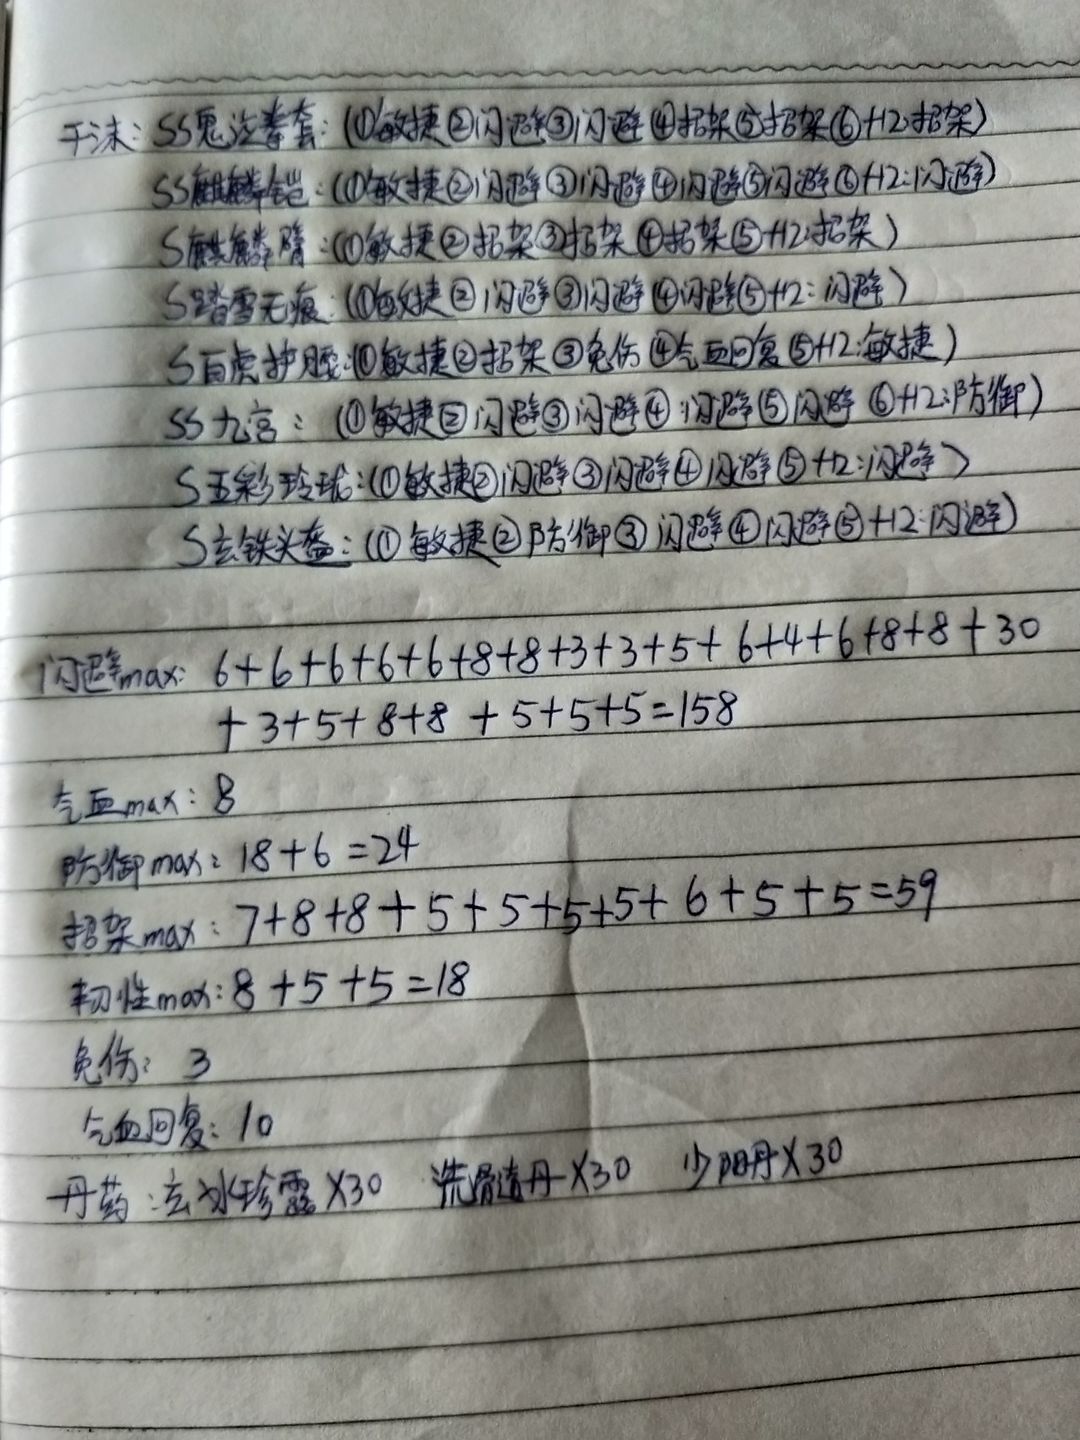 于沫：SS鬼泣拳套：(①敏捷②闪避③闪避④招架⑤招架⑥+12:招架)
SS麒麟铠：(①敏捷②闪避③闪避④闪避⑤闪避⑥+12:闪避)
S麒麟臂：(①敏捷②招架③招架④招架⑤+12:招架)
S踏雪无痕：(①敏捷②闪避③闪避④闪避⑤+12：闪避)
S白虎护腰：(①敏捷②招架③免伤④气血回复⑤+12:敏捷)
SS九宫：(①敏捷②闪避③闪避④闪避⑤闪避⑥+12:防御)
S五彩玲珑：(①敏捷②闪避③闪避④闪避⑤+12:闪避)
S玄铁头盔：(①敏捷②防御③闪避④闪避⑤+12:闪避)
闪避max：6+6+6+6+6+8+8+3+3+5+6+4+6+8+8+30
+3+5+8+8+5+5+5=158
气血max：8
防御max：18+6=24
招架max：7+8+8+5+5+5+5+6+5+5=59
韧性max：8+5+5=18
免伤：3
气血回复：10
丹药：玄冰珍露X30 洗骨造丹X30 少阳丹X30